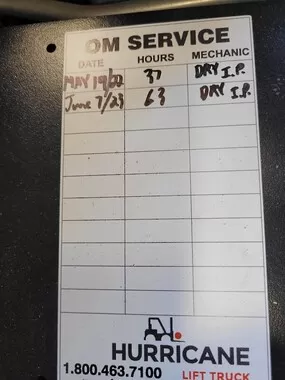 OM SERVICE
DATE HOURS MECHANIC
MAY 19/22 37 DRY I.P.
June 7/23 63 DRY I.P.
HURRICANE
1.800.463.7100 LIFT TRUCK